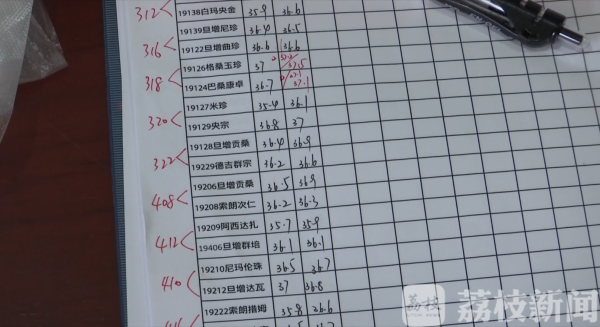 312 19138白玛央金 35.9 36.6
19139旦增尼珍 36.4 36.5
316 19122旦增曲珍 36.6 36.6
19126格桑玉珍 37 37.5
318 19124巴桑康卓 36.7 37.1
19127米珍 35.4 36.1
320 19129央宗 36.8 37
19128旦增贡桑 36.4 36.9
322 19229德吉群宗 36.2 36.6
19206旦增贡桑 36.5 36.9
408 19208索朗次仁 36.2 36.3
19209阿西达扎 35.7 35.9
412 19406旦增群培 36.1 36.1
19210尼玛伦珠 36.5 36.7
410 19212旦增达瓦 37 36.8
19222索朗措姆 35.8 36.6
荔枝 荔枝新闻